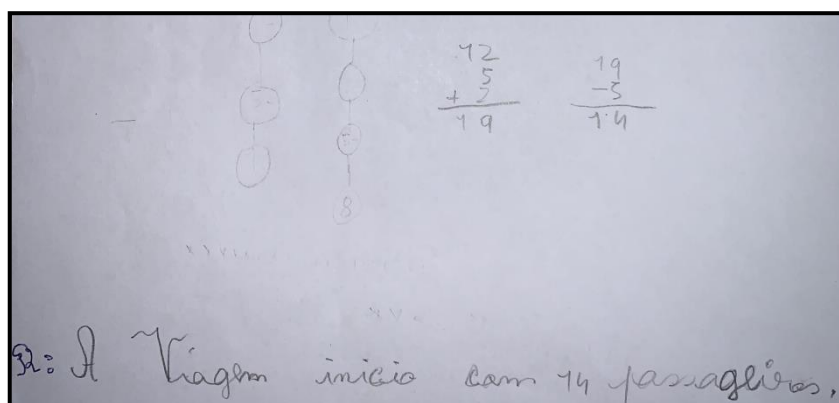 12
5
+ 2
19
19
-5
14
8
R: A Viagem inicio com 14 passageiros.